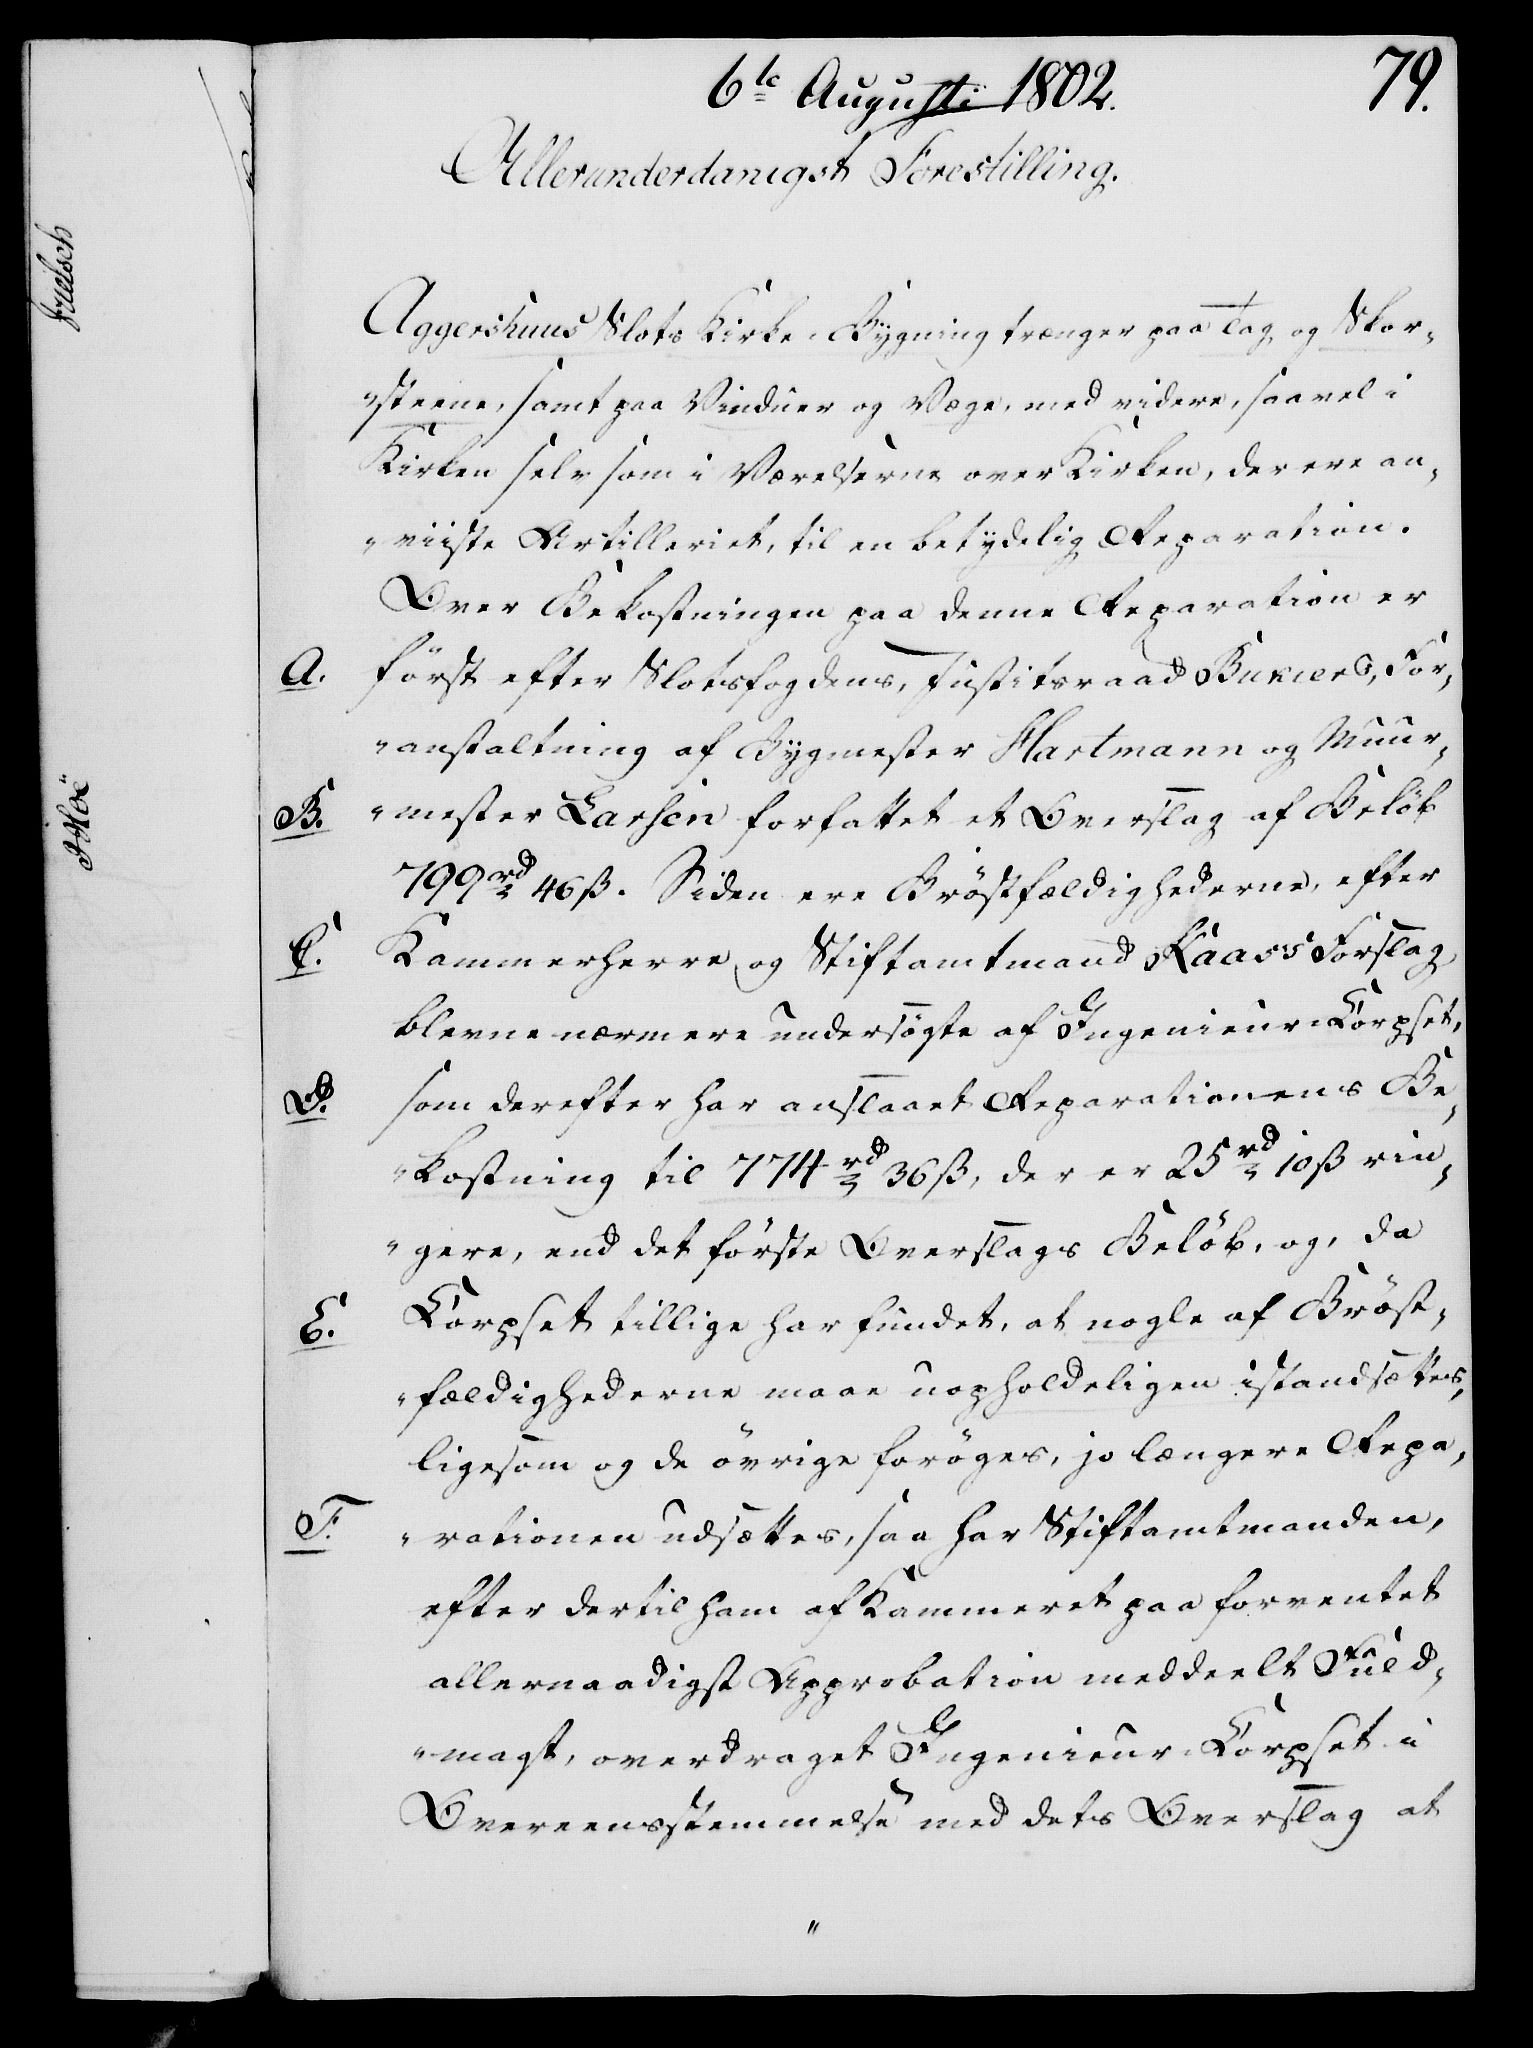 6te Augusti 1802.
79.
Allerunderdanigst Forestilling.
Aggershuus Slots Kirke-Bygning trænger paa Tag og Skor-
"steene, samt paa Vinduer og Væge, med videre, saavel i
Kirken selv som i Værelserne over Kirken, der ere an-
"viiste Artilleriet, til en betydelig Reparation.
Over Bekostningen paa denne Reparation er
A. först efter Slotsfogdens, Justitsraad Bukiers, For-
"anstaltning af Bygmester Hartmann og Muur-
B. "mester Larsen forfattet et Overslag af Belöb
799 rd 46 ß. Siden ere Bröstfældighederne, efter
C. Kammerherre og Stiftamtmand Kaass Forslag
blevne nærmere undersögte af Ingenieur-Corpset,
D. som derefter har anslaaet Reparationens Be-
"kostning til 774 rd 36 ß, der er 25 rd 10 ß rin-
"gere, end det förste Overslags Belöb, og, da
E. Corpset tillige har fundet, at nogle af Bröst-
"fældighederne maae uopholdeligen istandsættes,
ligesom og de övrige foröges, jo længere Repa-
F. "rationen udsættes, saa har Stiftamtmanden,
efter dertil ham af Kammeret paa forventet
allernaadigst Approbation meddeelt Fuld-
"magt, overdraget Ingenieur-Corpset i
Overeensstemmelse med dets Overslag at
"